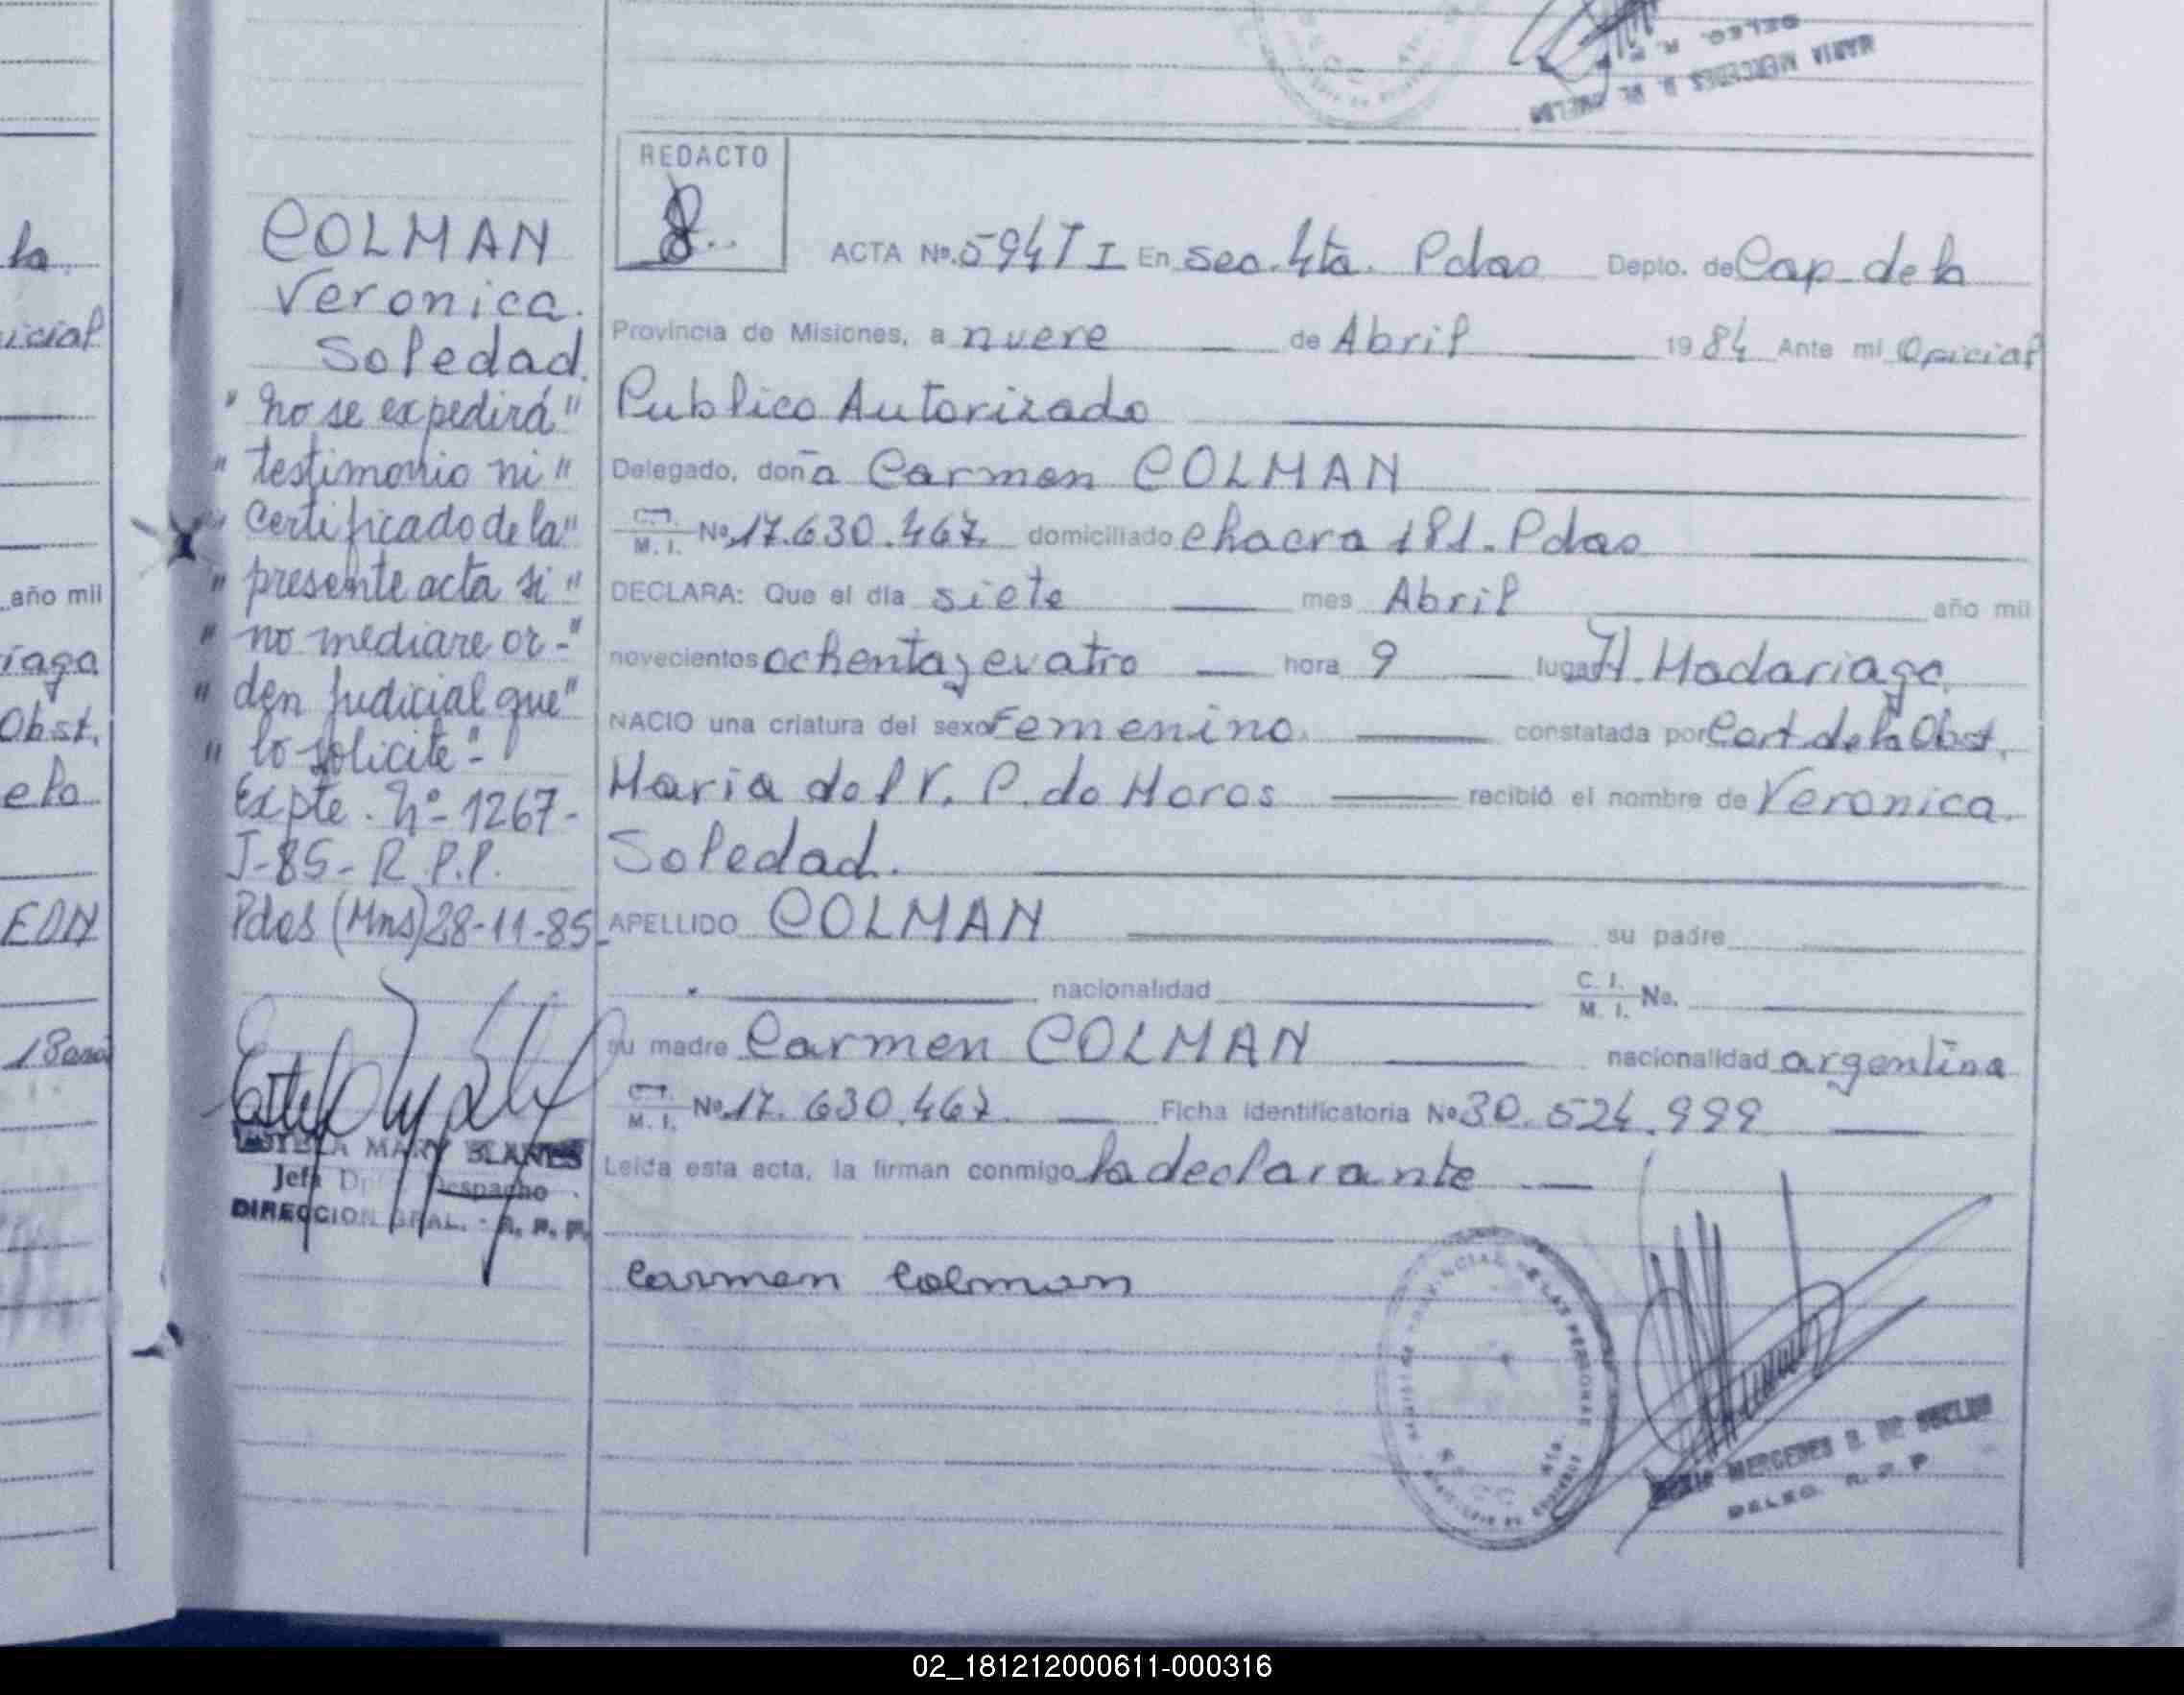 la
icial
año mil
iaga
Obst.
ela
EON
MARIA MERCEDES
DELEG. R.
COLMAN
Veronica.
Soledad.
"no se expedirá"
"testimonio ni"
"certificado de la"
"presente acta si"
"no mediare or-"
"den Judicial que"
"lo solicite"-
Expte. Nº 1267-
J-85- R.P.P.
Pdas (Mns) 28-11-85-
ESTELA MARY BLANES
Jefa Dpto Despacho
DIRECCION GRAL. - R. P. P.
REDACTO
ACTA No. 594 T I En sec. 4ta. Pdas Depto. de Cap. de la
Provincia de Misiones, a nueve de Abril 1984 Ante mi Oficial
Publico Autorizado
Delegado, doña Carmen COLMAN
C.I. M. I. No. 17.630.467. domiciliado chacra 181. Pdas
DECLARA: Que el día siete mes Abril año mil
novecientos ochenta y cuatro hora 9 lugar H. Madariaga.
NACIO una criatura del sexo Femenino. constatada por Cert. de la Obst.
Maria del V. P. de Moros recibió el nombre de Veronica.
Soledad.
APELLIDO COLMAN su padre
nacionalidad C. I. M. I. No.
su madre Carmen COLMAN nacionalidad argentina
C.I. M. I. No. 17. 630.467 Ficha identificatoria No 30.524.999
Leída esta acta, la firman conmigo la declarante
Carmen Colman
MERCEDES
DELEG. R. P. P
02_181212000611-000316